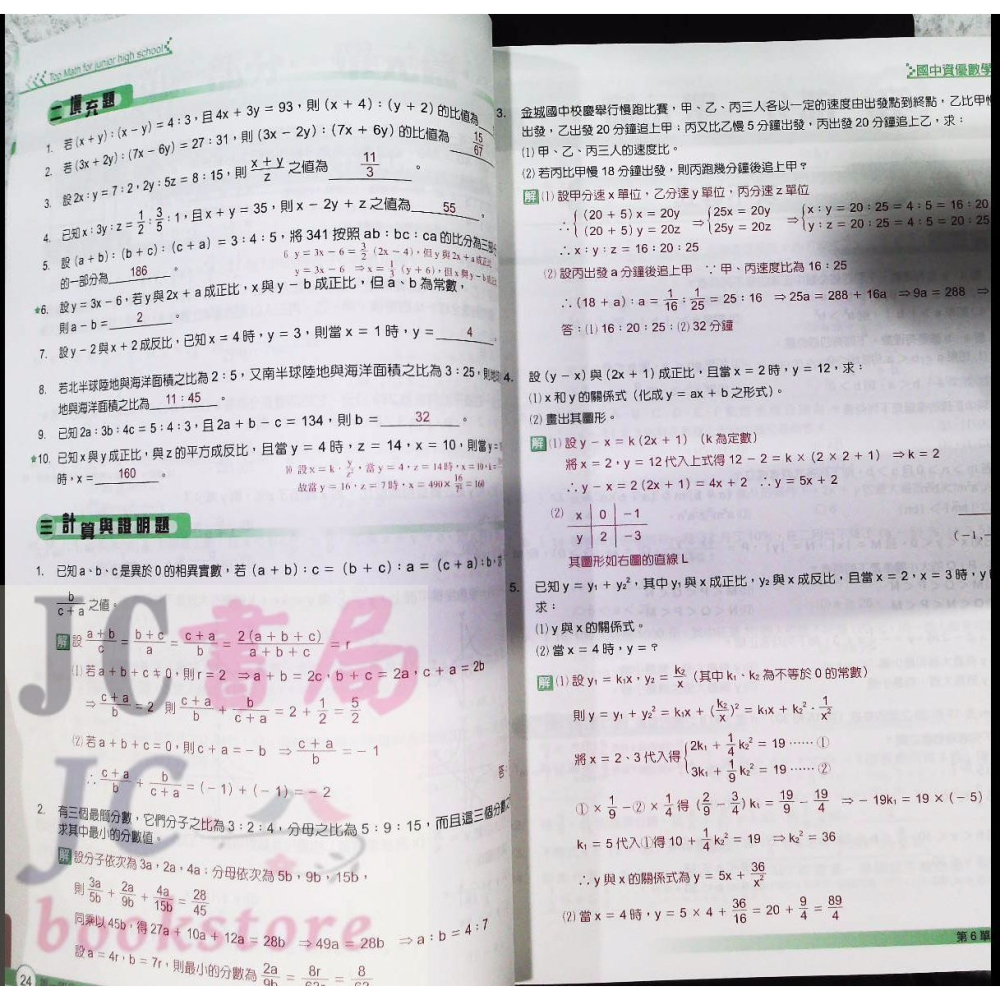 Top Math for junior high school
二 填充題
1. 若 (x + y)：(x − y) = 4：3，且 4x + 3y = 93，則 (x + 4)：(y + 2) 的比值為
2. 若 (3x + 2y)：(7x − 6y) = 27：31，則 (3x − 2y)：(7x + 6y) 的比值為 15/67
3. 設 2x：y = 7：2，2y：5z = 8：15，則 (x + y)/z 之值為 11/3 。
4. 已知 x：3y：z = 1/2：3/5：1，且 x + y = 35，則 x − 2y + z 之值為 55 。
5. 設 (a + b)：(b + c)：(c + a) = 3：4：5，將 341 按照 ab：bc：ca 的比分為三
的一部分為 186 。
6 y = 3x − 6 = 3/2 (2x − 4)，但 y 與 2x + a 成正比
y = 3x − 6 ⇒ x = 1/3 (y + 6)，但 x 與 y − b
★6. 設 y = 3x − 6，若 y 與 2x + a 成正比，x 與 y − b 成正比，但 a、b 為常數，
則 a − b = 2 。
7. 設 y − 2 與 x + 2 成反比，已知 x = 4 時，y = 3，則當 x = 1 時，y = 4
8. 若北半球陸地與海洋面積之比為 2：5，又南半球陸地與海洋面積之比為 3：25，則
地與海洋面積之比為 11：45 。
9. 已知 2a：3b：4c = 5：4：3，且 2a + b − c = 134，則 b = 32 。
★10. 已知 x 與 y 成正比，與 z 的平方成反比，且當 y = 4 時，z = 14，x = 10，則當 y =
時，x = 160 。
10 設 x = k · y/z²，當 y = 4，z = 14 時，x = 10，k =
故當 y = 16，z = 7 時，x = 490 × 16/7² = 160
三 計算與證明題
1. 已知 a、b、c 是異於 0 的相異實數，若 (a + b)：c = (b + c)：a = (c + a)：b，
b/(c + a) 之值。
解 設 (a + b)/c = (b + c)/a = (c + a)/b = 2(a + b + c)/(a + b + c) = r
(1) 若 a + b + c ≠ 0，則 r = 2 ⇒ a + b = 2c，b + c = 2a，c + a = 2b
⇒ (c + a)/b = 2 則 (c + a)/b + b/(c + a) = 2 + 1/2 = 5/2
(2) 若 a + b + c = 0，則 c + a = − b ⇒ (c + a)/b = − 1
∴ (c + a)/b + b/(c + a) = (− 1) + (− 1) = − 2
答：
2. 有三個最簡分數，它們分子之比為 3：2：4，分母之比為 5：9：15，而且這三個分數
求其中最小的分數值。
解 設分子依次為 3a，2a，4a；分母依次為 5b，9b，15b，
則 3a/5b + 2a/9b + 4a/15b = 28/45
同乘以 45b，得 27a + 10a + 12a = 28b ⇒ 49a = 28b ⇒ a：b = 4：7
設 a = 4r，b = 7r，則最小的分數為 2a/9b = 8r/63r = 8/63
24
JC書局
JC
bookstore
國中資優數學
3. 金城國中校慶舉行慢跑比賽，甲、乙、丙三人各以一定的速度由出發點到終點，乙比甲
出發，乙出發 20 分鐘追上甲；丙又比乙慢 5 分鐘出發，丙出發 20 分鐘追上乙，求：
(1) 甲、乙、丙三人的速度比。
(2) 若丙比甲慢 18 分鐘出發，則丙跑幾分鐘後追上甲？
解 (1) 設甲分速 x 單位，乙分速 y 單位，丙分速 z 單位
∴ { (20 + 5) x = 20y ⇒ { 25x = 20y ⇒ { x：y = 20：25 = 4：5 = 16：20
(20 + 5) y = 20z 25y = 20z y：z = 20：25 = 4：5 = 20：25
∴ x：y：z = 16：20：25
(2) 設丙出發 a 分鐘後追上甲 ∵ 甲、丙速度比為 16：25
∴ (18 + a)：a = 1/16：1/25 = 25：16 ⇒ 25a = 288 + 16a ⇒ 9a = 288 ⇒
答：(1) 16：20：25；(2) 32 分鐘
4. 設 (y − x) 與 (2x + 1) 成正比，且當 x = 2 時，y = 12，求：
(1) x 和 y 的關係式（化成 y = ax + b 之形式）。
(2) 畫出其圖形。
解 (1) 設 y − x = k (2x + 1) （k 為定數）
將 x = 2，y = 12 代入上式得 12 − 2 = k × (2 × 2 + 1) ⇒ k = 2
∴ y − x = 2 (2x + 1) = 4x + 2 ∴ y = 5x + 2
(2) x 0 −1
y 2 −3
其圖形如右圖的直線 L
(−1,
5. 已知 y = y₁ + y₂²，其中 y₁ 與 x 成正比，y₂ 與 x 成反比，且當 x = 2，x = 3 時，y
求：
(1) y 與 x 的關係式。
(2) 當 x = 4 時，y = ？
解 (1) 設 y₁ = k₁x，y₂ = k₂/x（其中 k₁、k₂ 為不等於 0 的常數）
則 y = y₁ + y₂² = k₁x + (k₂/x)² = k₁x + k₂² · 1/x²
將 x = 2、3 代入得 { 2k₁ + 1/4 k₂² = 19 …… ①
3k₁ + 1/9 k₂² = 19 …… ②
① × 1/9 − ② × 1/4 得 (2/9 − 3/4) k₁ = 19/9 − 19/4 ⇒ − 19k₁ = 19 × (− 5)
k₁ = 5 代入①得 10 + 1/4 k₂² = 19 ⇒ k₂² = 36
∴ y 與 x 的關係式為 y = 5x + 36/x²
(2) 當 x = 4 時，y = 5 × 4 + 36/16 = 20 + 9/4 = 89/4
第 6 單